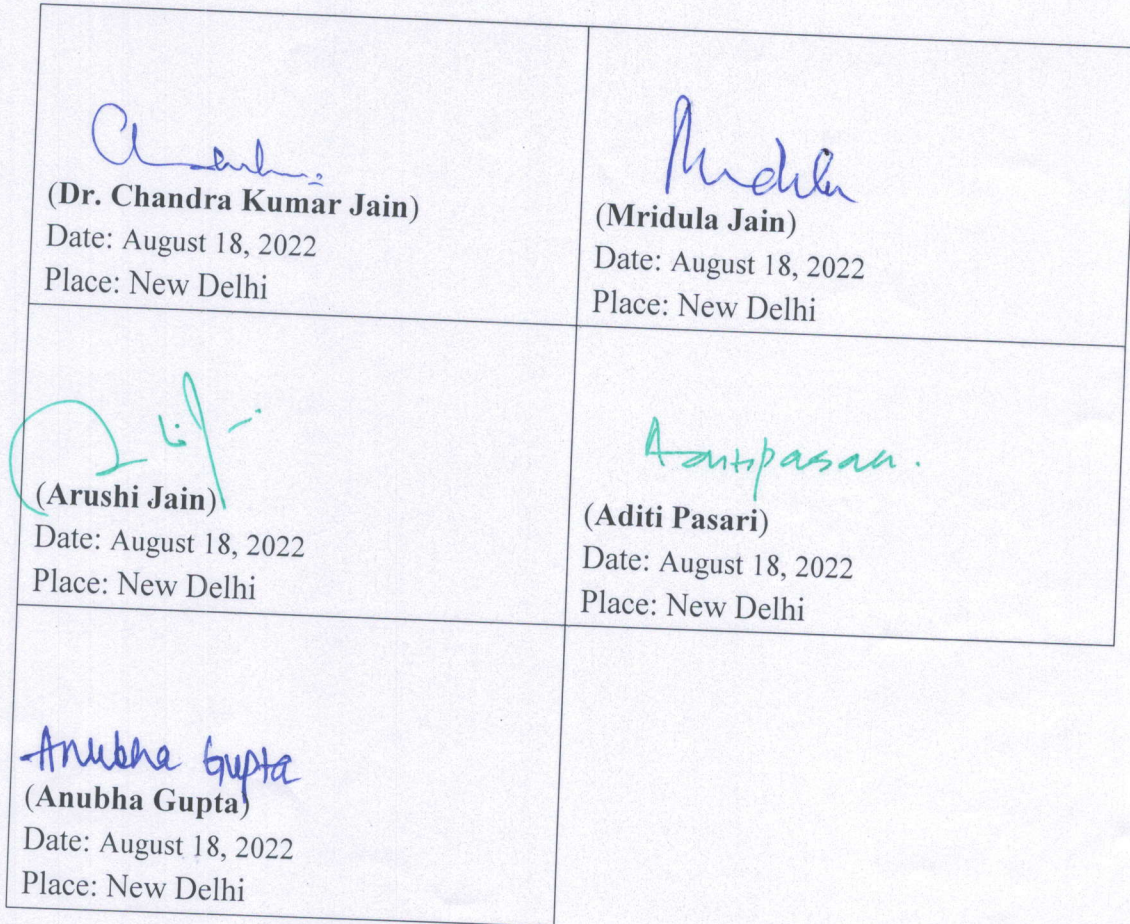 (Dr. Chandra Kumar Jain)
Date: August 18, 2022
Place: New Delhi
Mridula
(Mridula Jain)
Date: August 18, 2022
Place: New Delhi
(Arushi Jain)
Date: August 18, 2022
Place: New Delhi
(Aditi Pasari)
Date: August 18, 2022
Place: New Delhi
Anubha Gupta
(Anubha Gupta)
Date: August 18, 2022
Place: New Delhi